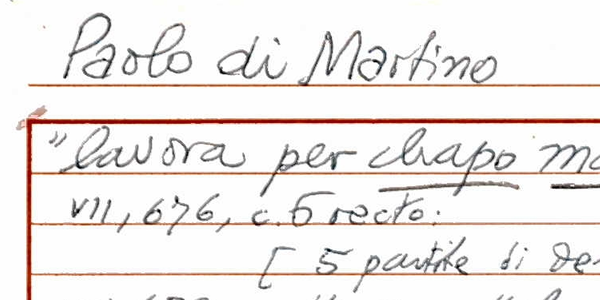 Paolo di Martino
"lavora per chapo
VII, 676, c. 5 recto:
[ 5 partite di